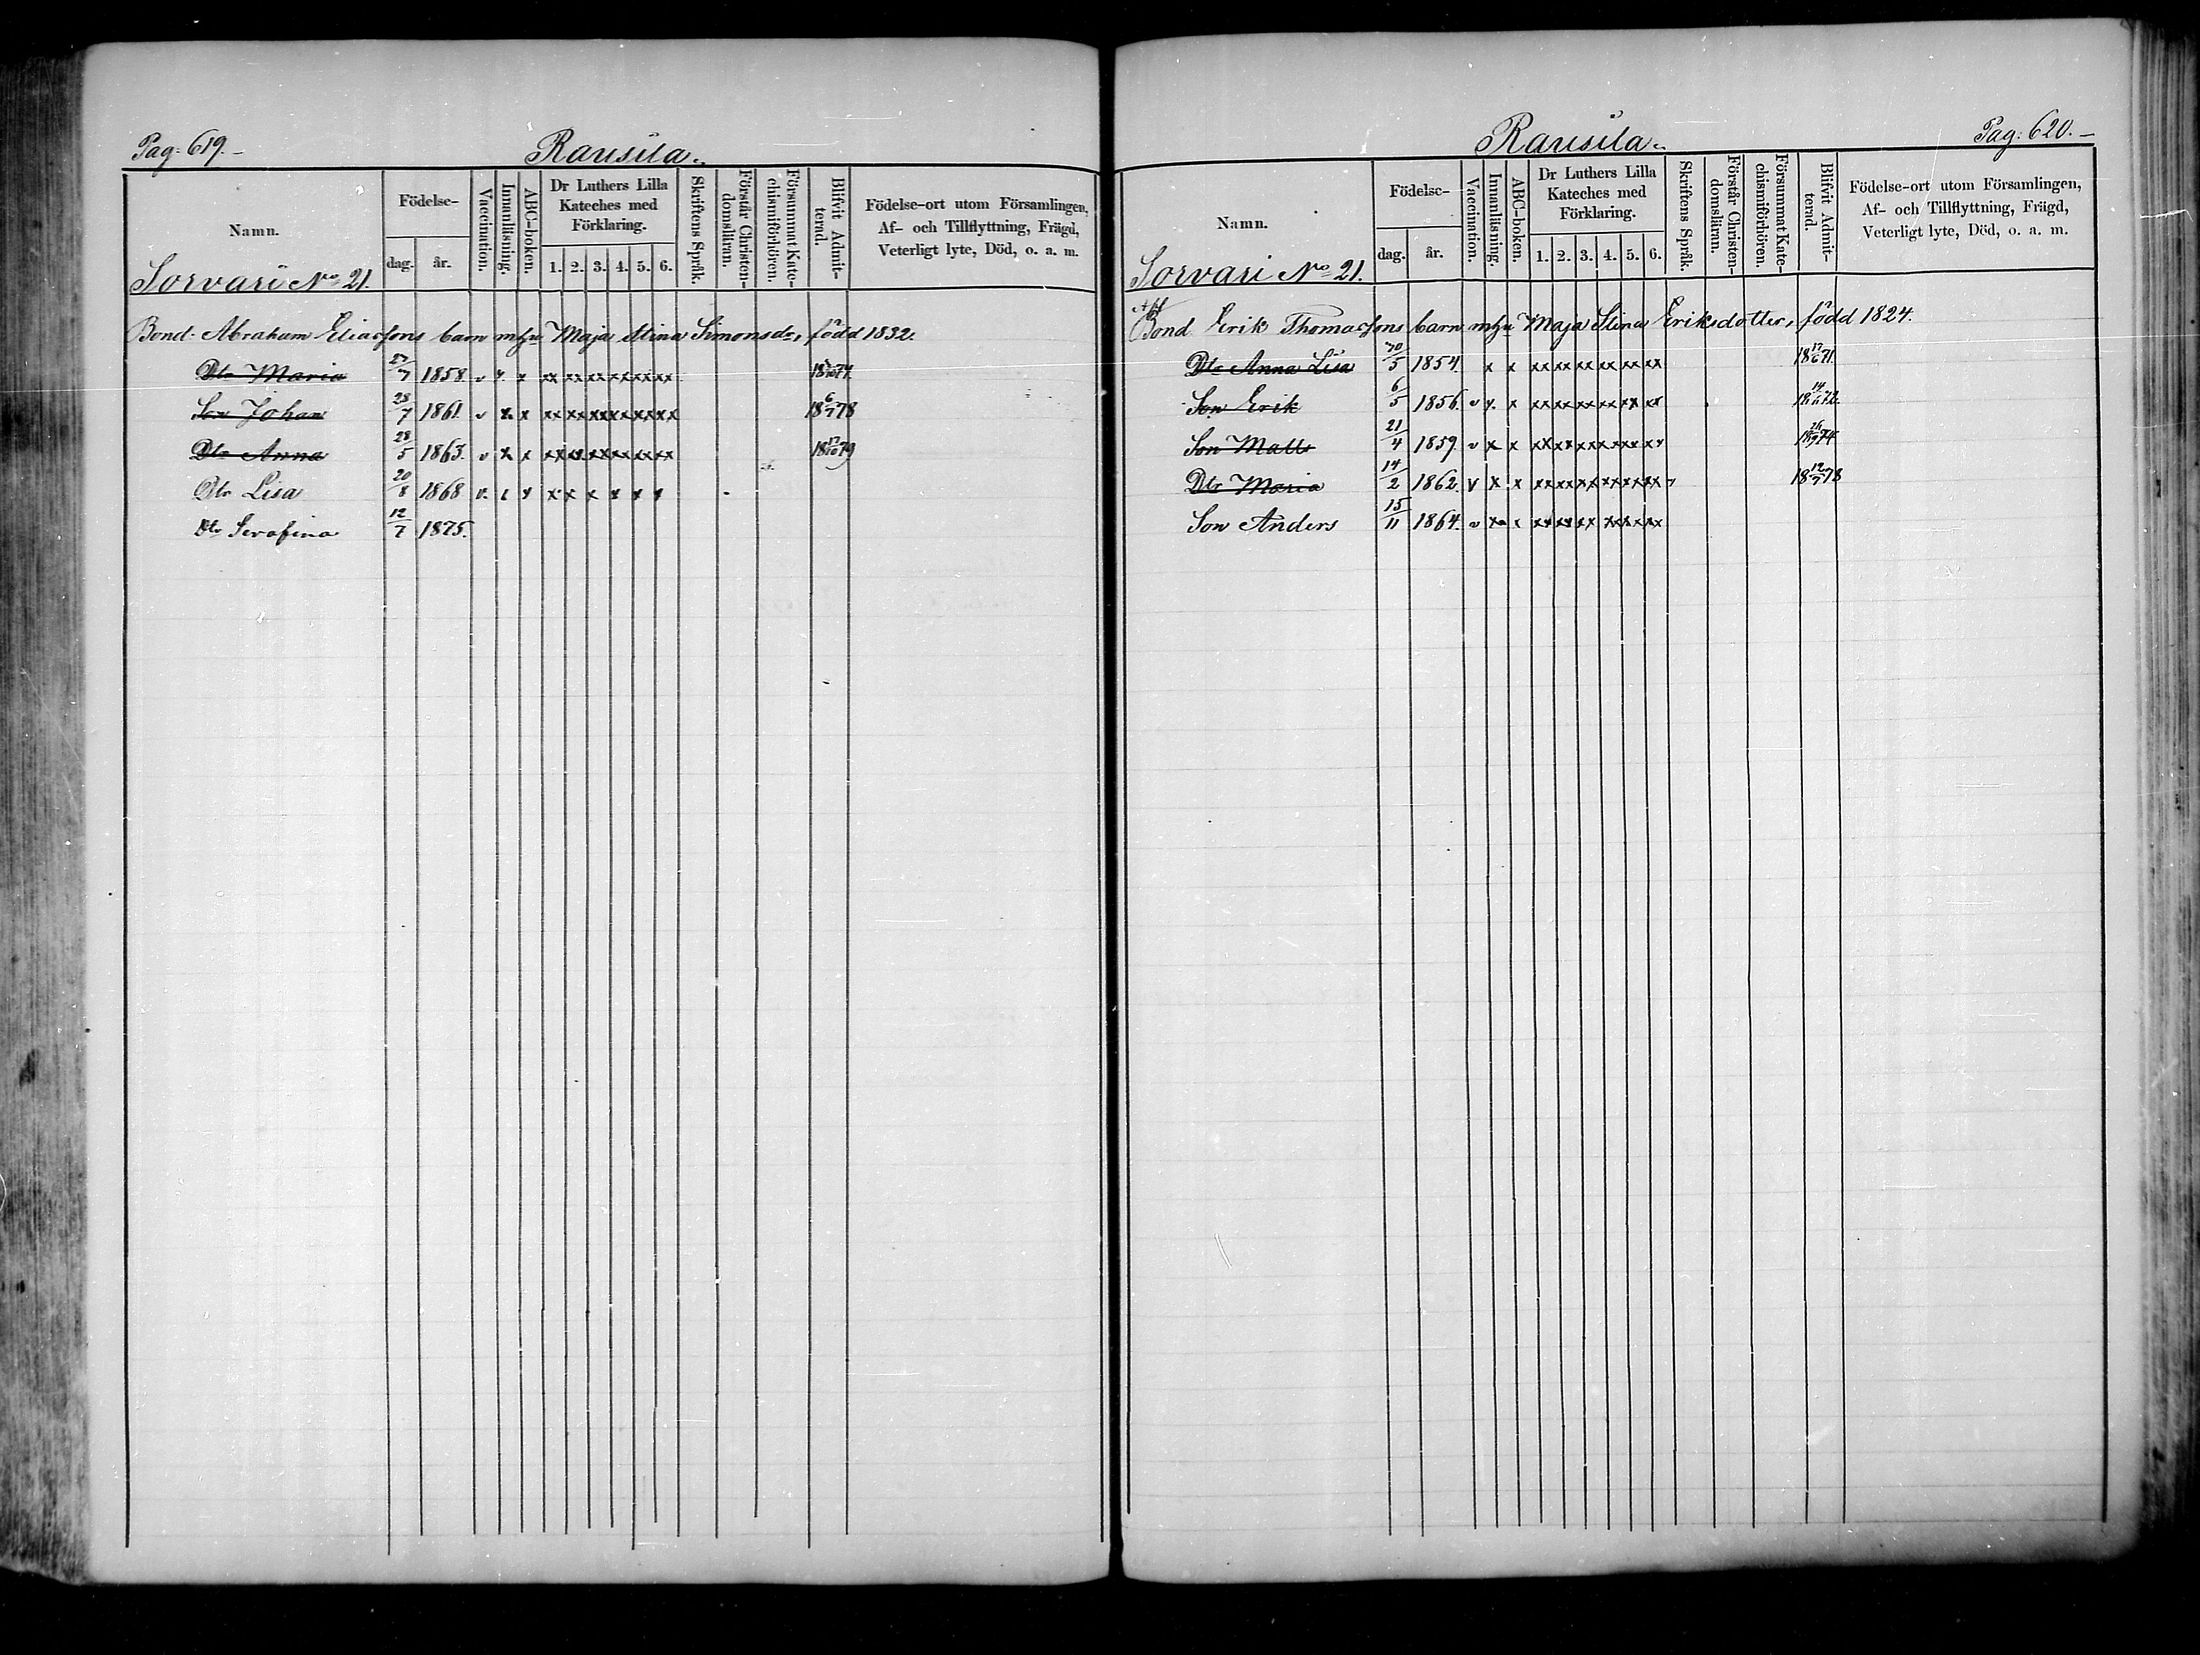 Pag: 619.
Rausila.
Namn.
Födelse-
dag.
år.
Vaccination.
Innanläsning.
ABC-boken.
Dr Luthers Lilla
Kateches med
Förklaring.
1. 2. 3. 4. 5. 6.
Skriftens Språk.
Förstår Christen-
domsläran.
Försummat Kate-
chismiförhören.
Blifvit Admit-
terad.
Födelse-ort utom Församlingen,
Af- och Tillflyttning, Frägd,
Veterligt lyte, Död, o. a. m.
Sorvari No 21.
Bond. Abraham Eliassons barn m hu Maja Stina Simonsdr, född 1832.
Dtr Maria 27/7 1858. v x x xx xx xx xx xx xx
Son Johan 28/7 1861. v x x xx xx xx xx xx xx 18 6/7 78
Dtr Anna 28/5 1863. v x x xx xx xx xx xx xx 18 12/10 79
Dtr Lisa 20/8 1868 v x x x x x x x
Dtr Serafina 12/7 1875.
Pag: 620.
Rausila.
Namn.
Födelse-
dag.
år.
Vaccination.
Innanläsning.
ABC-boken.
Dr Luthers Lilla
Kateches med
Förklaring.
1. 2. 3. 4. 5. 6.
Skriftens Språk.
Förstår Christen-
domsläran.
Försummat Kate-
chismiförhören.
Blifvit Admit-
terad.
Födelse-ort utom Församlingen,
Af- och Tillflyttning, Frägd,
Veterligt lyte, Död, o. a. m.
Sorvari No 21.
Bond. Erik Thomassons barn m hu Maja Stina Eriksdotter, född 1824.
Dtr Anna Lisa 1854. x x xx xx xx xx xx xx 18 17/6 71.
Son Erik 6/5 1856. v x x xx xx xx xx xx xx
Son Matts 21/4 1859. v x x xx xx xx xx xx xx 18 26/9 74
Dtr Maria 14/2 1862. v x x xx xx xx xx xx xx 18 12/7 78
Son Anders 15/11 1864. v x x xx xx xx xx xx xx